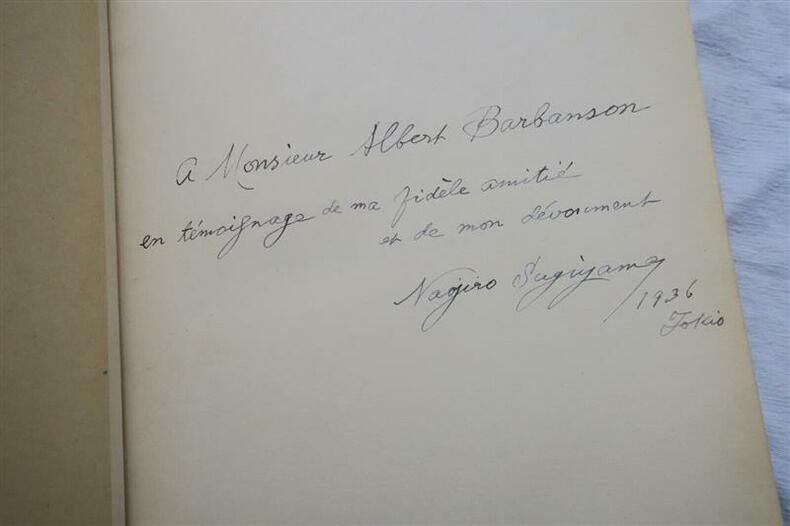 A Monsieur Albert Barbanson
en témoignage de ma fidèle amitié
et de mon dévouement
Naojiro Sugiyama
1936
Tokio